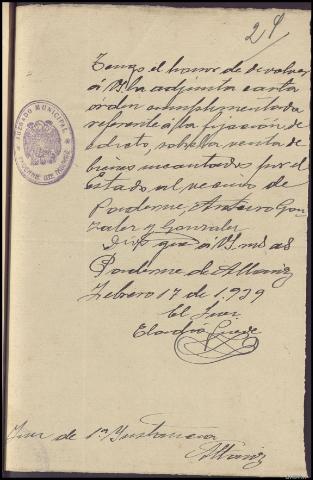 24
Tengo el honor de devolver
á V. la adjunta carta
órden cumplimentada
referente á la fijacion de
edicto, sobre la venta de
bienes incautados por el
Estado al vecino de
Paderne, Antero Gon-
zalez y Gonzalez
Dios gue á V. m. as
Paderne de Allariz
Febrero 17 de 1.939
El Juez
Claudio
JUZGADO MUNICIPAL
PADERNE DE ALLARIZ
Juez de 1ª Instancia
Allariz